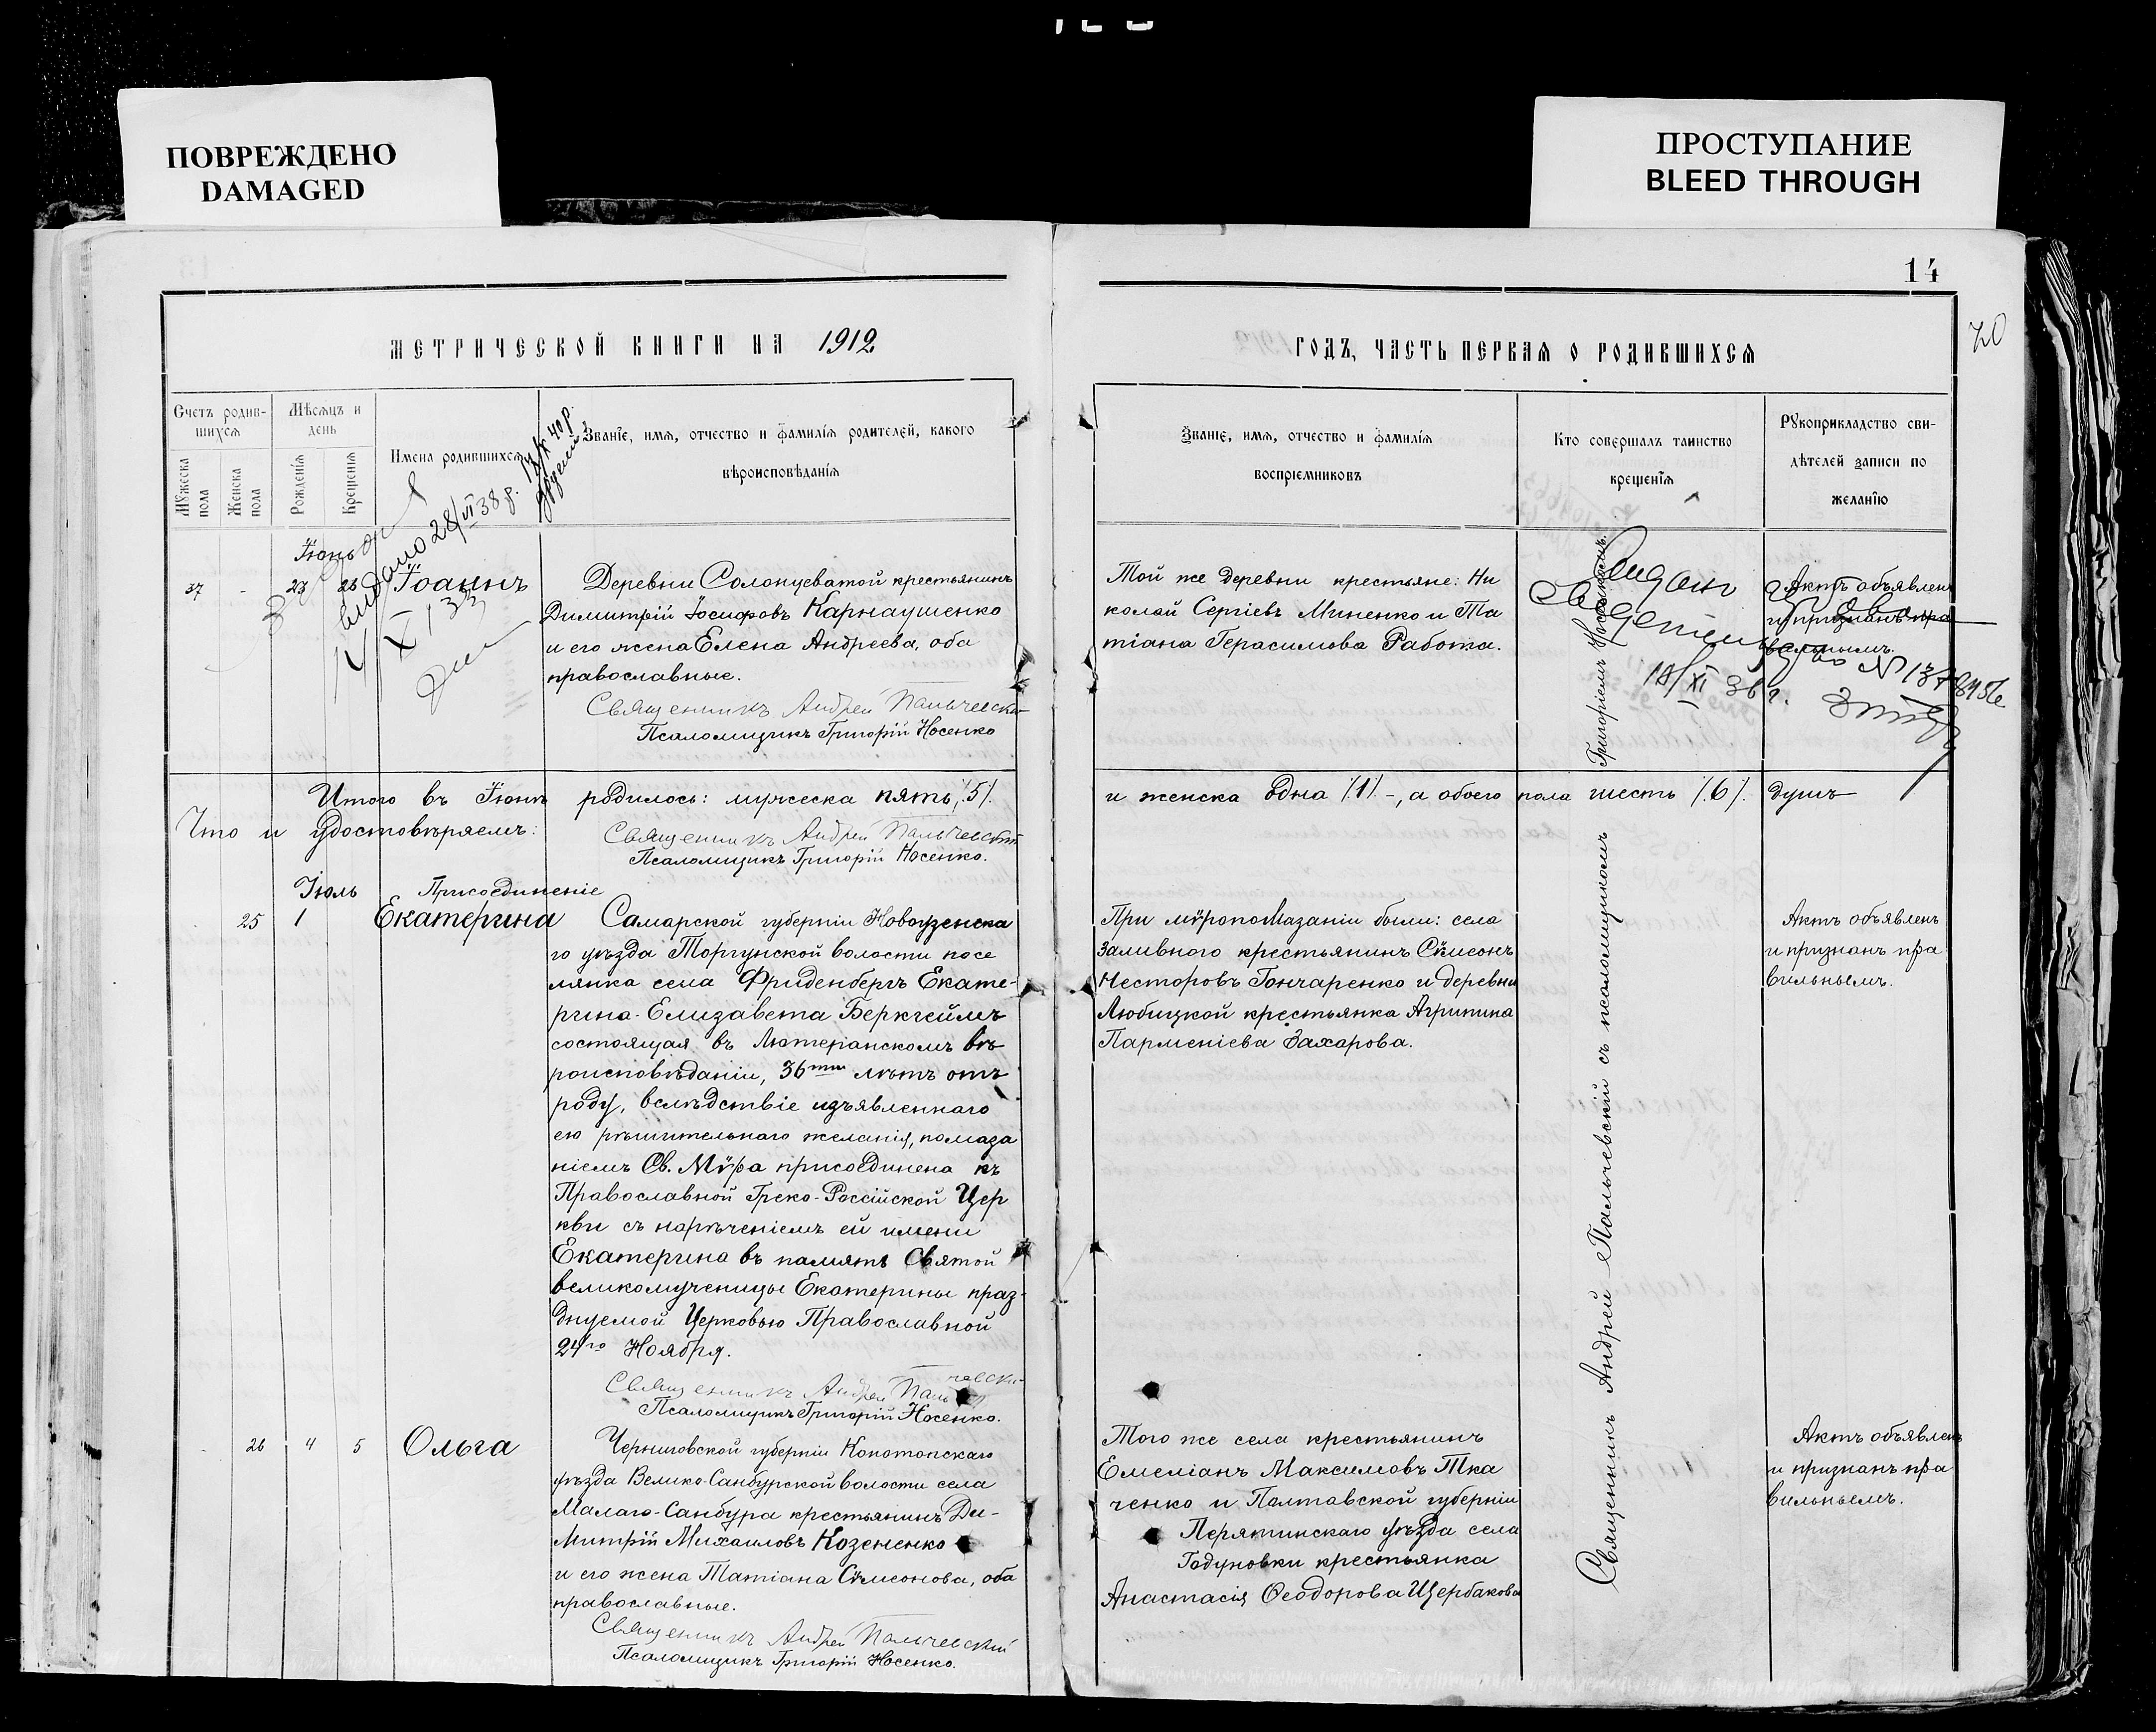 ПОВРЕЖДЕНО
DAMAGED
ПРОСТУПАНИЕ
BLEED THROUGH
14
70
МЕТРИЧЕСКОЙ КНИГИ НА 1912
ГОДЪ, ЧАСТЬ ПЕРВАЯ О РОДИВШИХСЯ
Счетъ родив-
шихся
Мужеска пола
Женска пола
Мѣсяцъ и
день
Рожденія
Крещенія
Имена родившихся
Званіе, имя, отчество и фамилія родителей, какого
вѣроисповѣданія
Званіе, имя, отчество и фамилія
воспріемниковъ
Кто совершалъ таинство
крещенія
Рукоприкладство сви-
дѣтелей записи по
желанію
выдано 28/VI 38 г.
Іюнь
37 - 23 23 Іоаннъ
Деревни Солонцеватой крестьянинъ
Димитрій Іосифовъ Карнаушенко
и его жена Елена Андреева, оба
православные.
Священникъ Андрей Пальчевскій
Псаломщикъ Григорій Носенко
Той же деревни крестьяне: Ни
колай Сергіевъ Миненко и Та
тіана Герасимова Работа.
Актъ объявленъ
и признанъ пра
вильнымъ.
18/XI 36 г.
Итого въ Іюнѣ родилось: мужеска пять /5/.
и женска одна /1/ -, а обоего пола шесть /6/. душъ
Что и удостовѣряемъ:
Священникъ Андрей Пальчевскій
Псаломщикъ Григорій Носенко.
Іюль Присоединеніе
25 1 Екатерина
Самарской губерніи Новоузенска
го уѣзда Торгунской волости посе
лянка села Фриденбергъ Екате-
рина-Елизавета Беркгеймъ
состоящая въ Лютеранскомъ вѣ
роисповѣданіи, 36ти лѣтъ отъ
роду, вслѣдствіе изъявленнаго
ею рѣшительнаго желанія, помаза
ніемъ Св. Мѵра присоединена къ
Православной Греко-Россійской Цер
кви съ нареченіемъ ей имени
Екатерина въ память Святой
великомученицы Екатерины праз-
днуемой Церковью Православной
24го Ноября.
Священникъ Андрей Пальчевскій
Псаломщикъ Григорій Носенко.
При мѵропомазаніи были: села
Заливного крестьянинъ Сѵмеонъ
Несторовъ Гончаренко и деревни
Любицкой крестьянка Агрипина
Парменіева Захарова.
Актъ объявленъ
и признанъ пра
вильнымъ.
26 4 5 Ольга
Черниговской губерніи Конотопскаго
уѣзда Велико-Санбурской волости села
Малаго-Санбура крестьянинъ Ди-
митрій Михаиловъ Козененко
и его жена Татіана Сѵмеонова, оба
православные.
Священникъ Андрей Пальчевскій
Псаломщикъ Григорій Носенко.
Того же села крестьянинъ
Емеліанъ Максимовъ Тка
ченко и Полтавской губерніи
Пирятинскаго уѣзда села
Годуновки крестьянка
Анастасія Ѳеодорова Щербакова
Священникъ Андрей Пальчевскій съ псаломщикомъ Григоріемъ Носенкомъ.
Актъ объявленъ
и признанъ пра
вильнымъ.